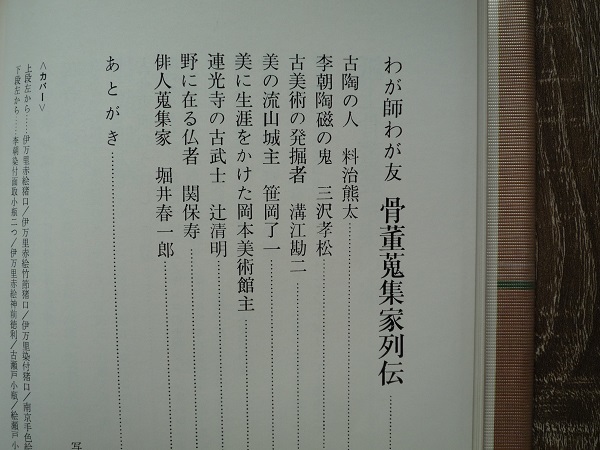 わが師わが友 骨董蒐集家列伝
古陶の人 料治熊太
李朝陶磁の鬼 三沢孝松
古美術の発掘者 溝江勘二
美の流山城主 笹岡了一
美に生涯をかけた岡本美術館主
連光寺の古武士 辻清明
野に在る仏者 関保寿
俳人蒐集家 堀井春一郎
あとがき
写
〈カバー〉
上段左から……伊万里赤絵猪口／伊万里赤絵竹節猪口／伊万里染付猪口／南京手色絵
下段左から……李朝染付面取小瓶二つ／伊万里赤絵神前徳利／古瀬戸小瓶／絵瀬戸小